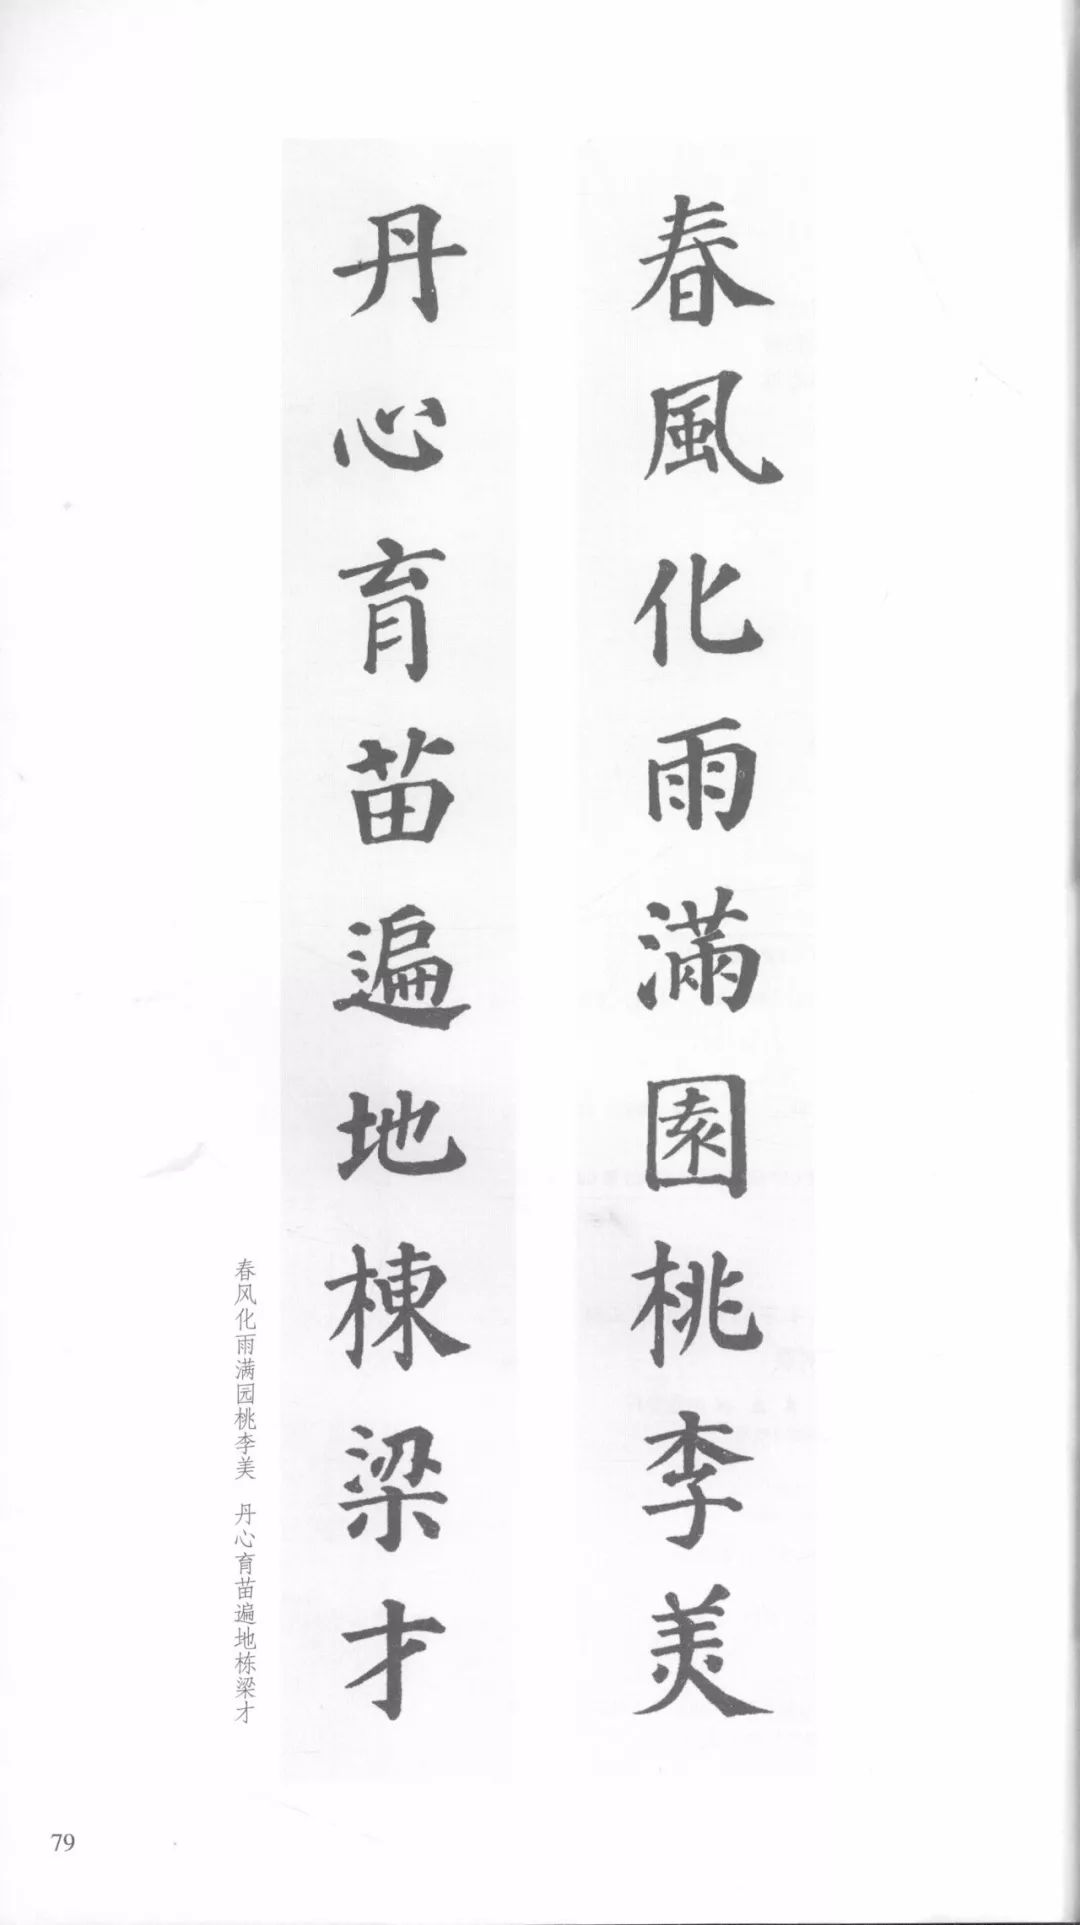 春風化雨滿園桃李美
丹心育苗遍地棟梁才
春风化雨满园桃李美 丹心育苗遍地栋梁才
79